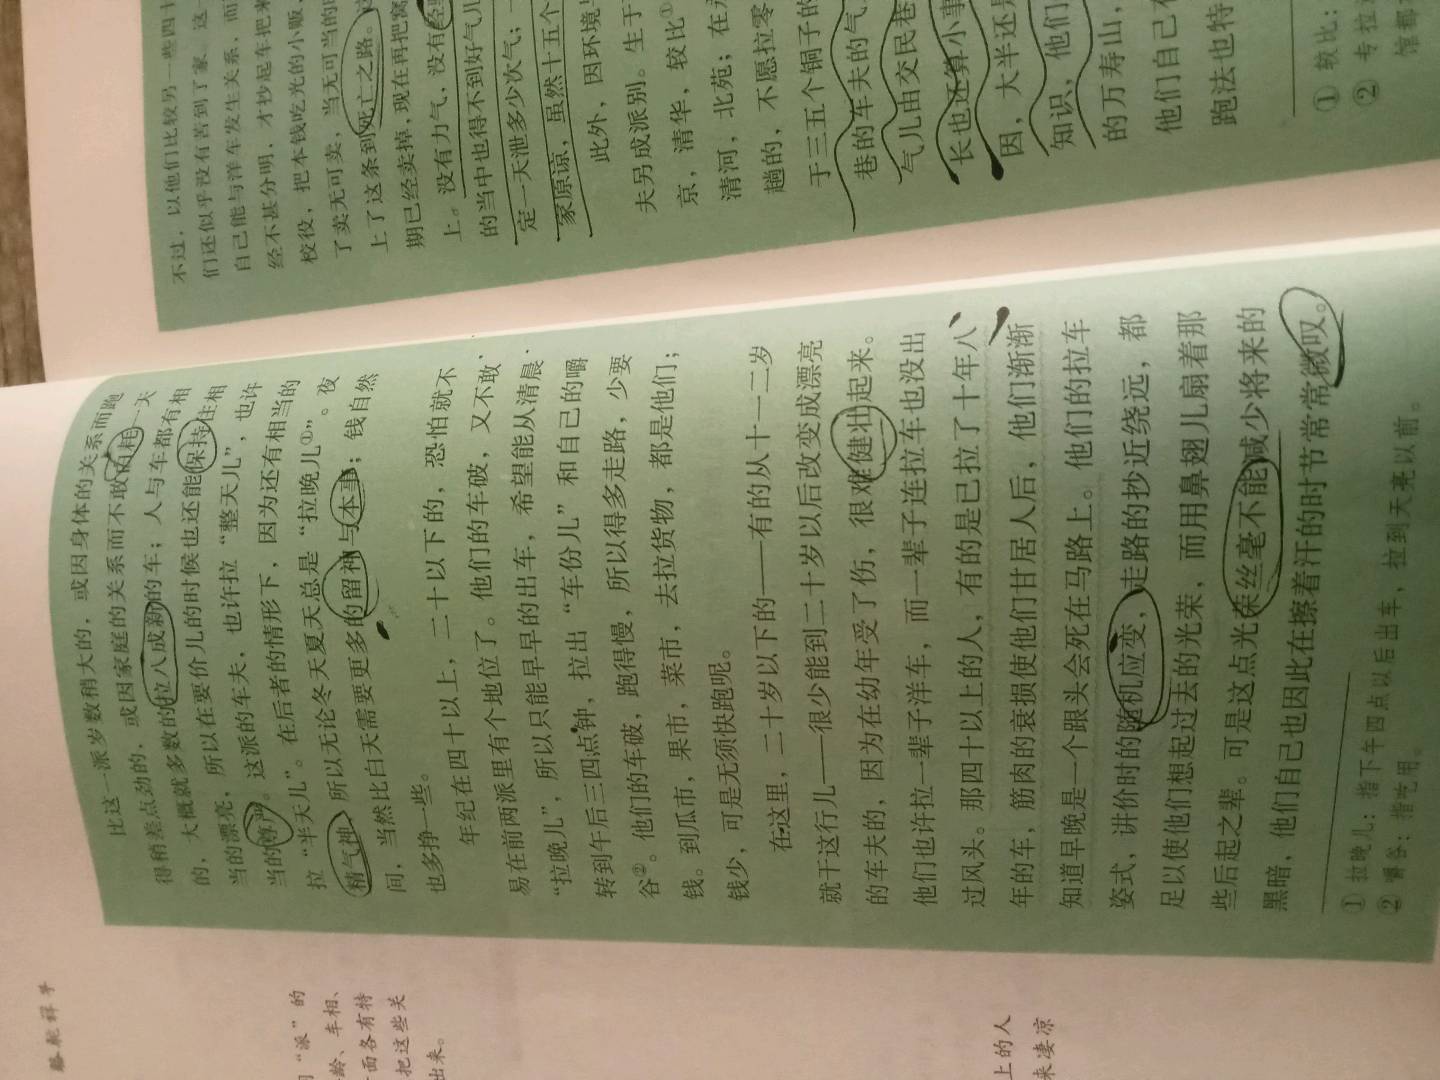 骆驼祥子
“派”的
龄、车相、
面各有特
把这些关
出来。
上的人
来凄凉
比这一派岁数稍大的，或因身体的关系而跑
得稍差点劲的，或因家庭的关系而不敢白耗一天
的，大概就多数的拉八成新的车；人与车都有相
当的漂亮，所以在要价儿的时候也还能保持住相
当的尊严。这派的车夫，也许拉“整天儿”，也许
拉“半天儿”。在后者的情形下，因为还有相当的
精气神，所以无论冬天夏天总是“拉晚儿①”。夜
间，当然比白天需要更多的留神与本事；钱自然
也多挣一些。
年纪在四十以上，二十以下的，恐怕就不
易在前两派里有个地位了。他们的车破，又不敢
“拉晚儿”，所以只能早早的出车，希望能从清晨
转到午后三四点钟，拉出“车份儿”和自己的嚼
谷②。他们的车破，跑得慢，所以得多走路，少要
钱。到瓜市，果市，菜市，去拉货物，都是他们；
钱少，可是无须快跑呢。
在这里，二十岁以下的——有的从十一二岁
就干这行儿——很少能到二十岁以后改变成漂亮
的车夫的，因为在幼年受了伤，很难健壮起来。
他们也许拉一辈子洋车，而一辈子连拉车也没出
过风头。那四十以上的人，有的是已拉了十年八
年的车，筋肉的衰损使他们甘居人后，他们渐渐
知道早晚是一个跟头会死在马路上。他们的拉车
姿式，讲价时的随机应变，走路的抄近绕远，都
足以使他们想起过去的光荣，而用鼻翅儿扇着那
些后起之辈。可是这点光荣丝毫不能减少将来的
黑暗，他们自己也因此在擦着汗的时节常常微叹。
① 拉晚儿：指下午四点以后出车，拉到天亮以前。
② 嚼谷：指吃用。
不过，以他们比较另一些四十
们还似乎没有苦到了家。这一
自己能与洋车发生关系，而
经不甚分明，才抄起车把来
校役，把本钱吃光的小贩，
了卖无可卖，当无可当的
上了这条到死亡之路。
期已经卖掉，现在再把窝
上。没有力气，没有经
的当中也得不到好气儿
定一天泄多少次气；
家原谅，虽然十五个
此外，因环境
夫另成派别。生于
京，清华，较比①
清河，北苑；在
趟的，不愿拉零
于三五个铜子的
巷的车夫的气
气儿由交民巷
长也还算小事
因，大半还是
知识，他们
的万寿山，
他们自己
跑法也特
① 较比：
② 专拉
馆都